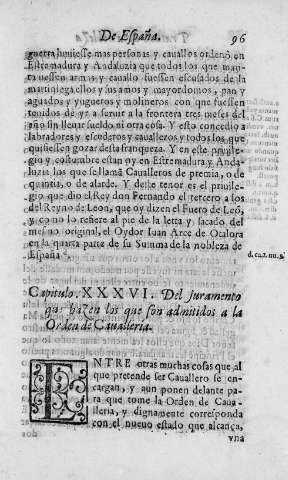 De España. 96
guerra huuiesse mas personas y cauallos ordenò en
Estremadura y Andaluzia que todos los que man-
tuuessen armas y cauallo fuessen escusados de la
martiniega ellos y sus amos y mayordomos, pan y
aguados y yugueros y molineros con que fuessen
tenidos de yr a seruir a la frontera tres meses del
año sin lleuar sueldo ni otra cosa. Y esto concedio a
labradores y escuderos y caualleros y todos los que
quisiessen gozar desta franqueza. Y en este priuile-
gio y costumbre estan oy en Estremadura y Anda-
luzia los que se llamā Caualleros de premia, o se
quantia, o de alarde. Y deste tenor es el priuile-
gio que dio el Rey don Fernando el tercero a los
del Reyno de Leon, que oy dizen el Fuero de Leō,
y como lo refiere al pie de la letra y sacado del
mesmo original, el Oydor Iuan Arce de Otalora
en la quarta parte de su Summa de la nobleza de
España.
d. ca. 2. nu. 9.
Capitulo. XXXVI. Del juramento
que hazen los que son admitidos a la
Orden de Caualleria.
ENTRE otras muchas cosas que al
que pretende ser Cauallero se en-
cargan, y aun ponen delante pa-
ra que tome la Orden de Caua-
lleria, y dignamente corresponda
con el nueuo estado que alcança,
vna